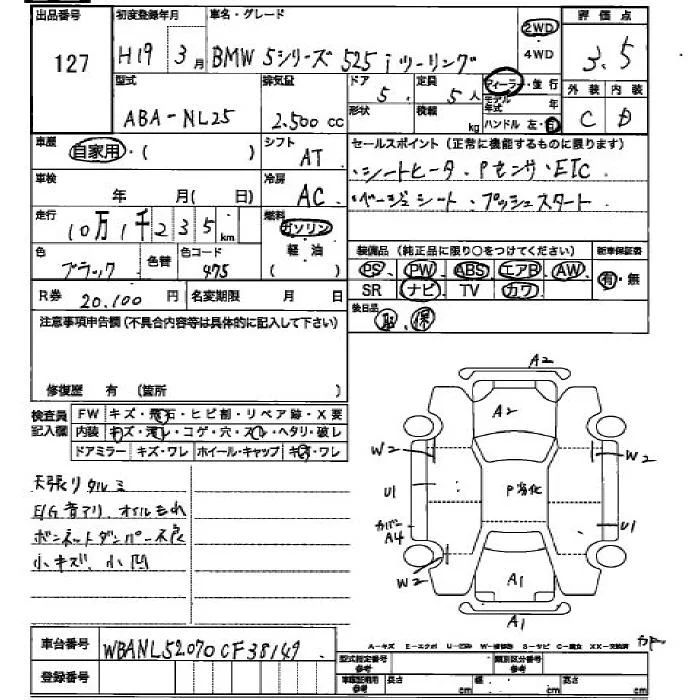 出品番号
127
初度登録年月
H19 3月
車名・グレード
BMW 5シリーズ 525iツーリング
2WD
・4WD
評価点
3.5
型式
ABA-NL25
排気量
2.500cc
ドア
5
定員
5人
ディーラー・並行
モデル年式 年
形状
積載 kg
ハンドル 左・右
外装 内装
C D
車歴
自家用・( )
シフト
AT
セールスポイント(正常に機能するものに限ります)
・シートヒータ・Pセンサ・ETC
・ベージュシート・プッシュスタート
車検
年 月( 日)
冷房
AC
走行
10万1千235km
燃料
ガソリン
・軽油
( )
色
ブラック
色替
色コード
475
装備品(純正品に限り○をつけてください)
新車保証書
PS PW ABS エアB AW
SR ナビ TV カワ
有・無
R券 20.100円
名変期限 月 日
後日品
取、保
注意事項申告欄(不具合内容等は具体的に記入して下さい)
修復歴 有(箇所 )
検査員記入欄
FW キズ・飛石・ヒビ割・リペア跡・X要
内装 キズ・汚レ・コゲ・穴・スレ・ヘタリ・破レ
ドアミラー キズ・ワレ ホイール・キャップ キズ・ワレ
天張りタルミ
E/G音アリ、オイルもれ
ボンネットダンパー不良
小キズ、小凹
A2
A2
W2
W2
U1
P劣化
カバー
A4
U1
W2
A1
A1
車台番号
WBANL52070CF38149
登録番号
A-キズ E-エクボ U-凹み W-補修跡 S-サビ C-腐食 XX-交換済
型式指定番号
参考
類別区分番号
参考
車庫証明
参考
長さ cm
幅 cm
高さ cm